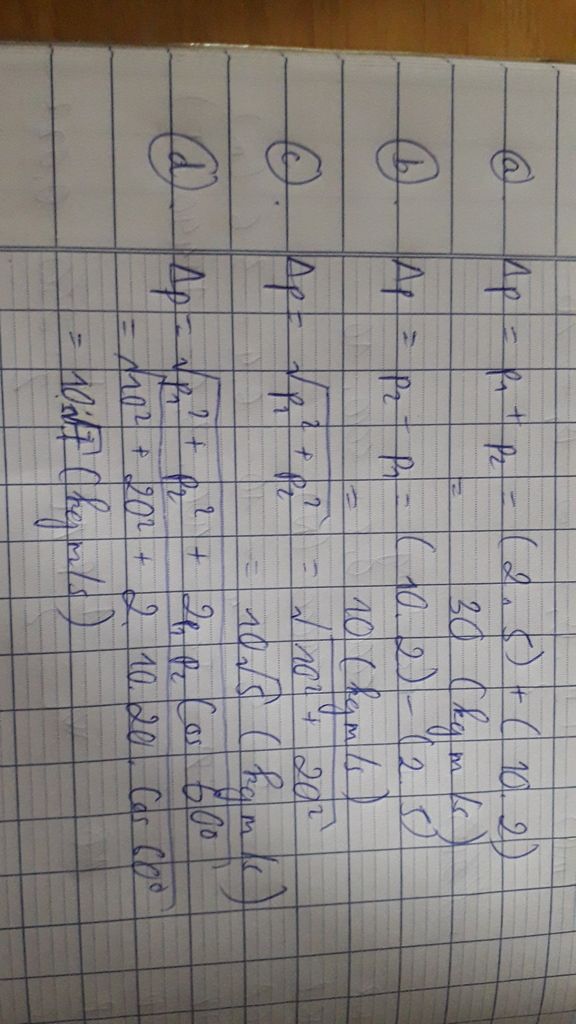 a Δp = p₁ + p₂ = (2.5) + (10.2)
= 30 (kg m/s)
b Δp = p₂ - p₁ = (10.2) - (2.5)
= 10 (kg m/s)
c Δp = √p₁² + p₂² = √10² + 20²
= 10√5 (kg m/s)
d Δp = √p₁² + p₂² + 2p₁p₂ Cos 60°
= √10² + 20² + 2.10.20.Cos 60°
= 10√7 (kg m/s)